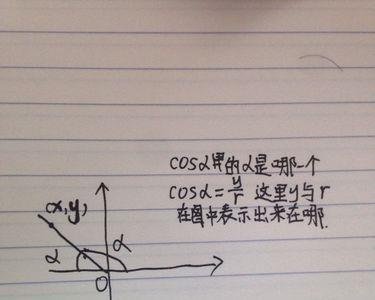 cosα里的α是哪一个
cosα=y/r 这里y与r
在图中表示出来在哪.
(x,y)
α
α
O